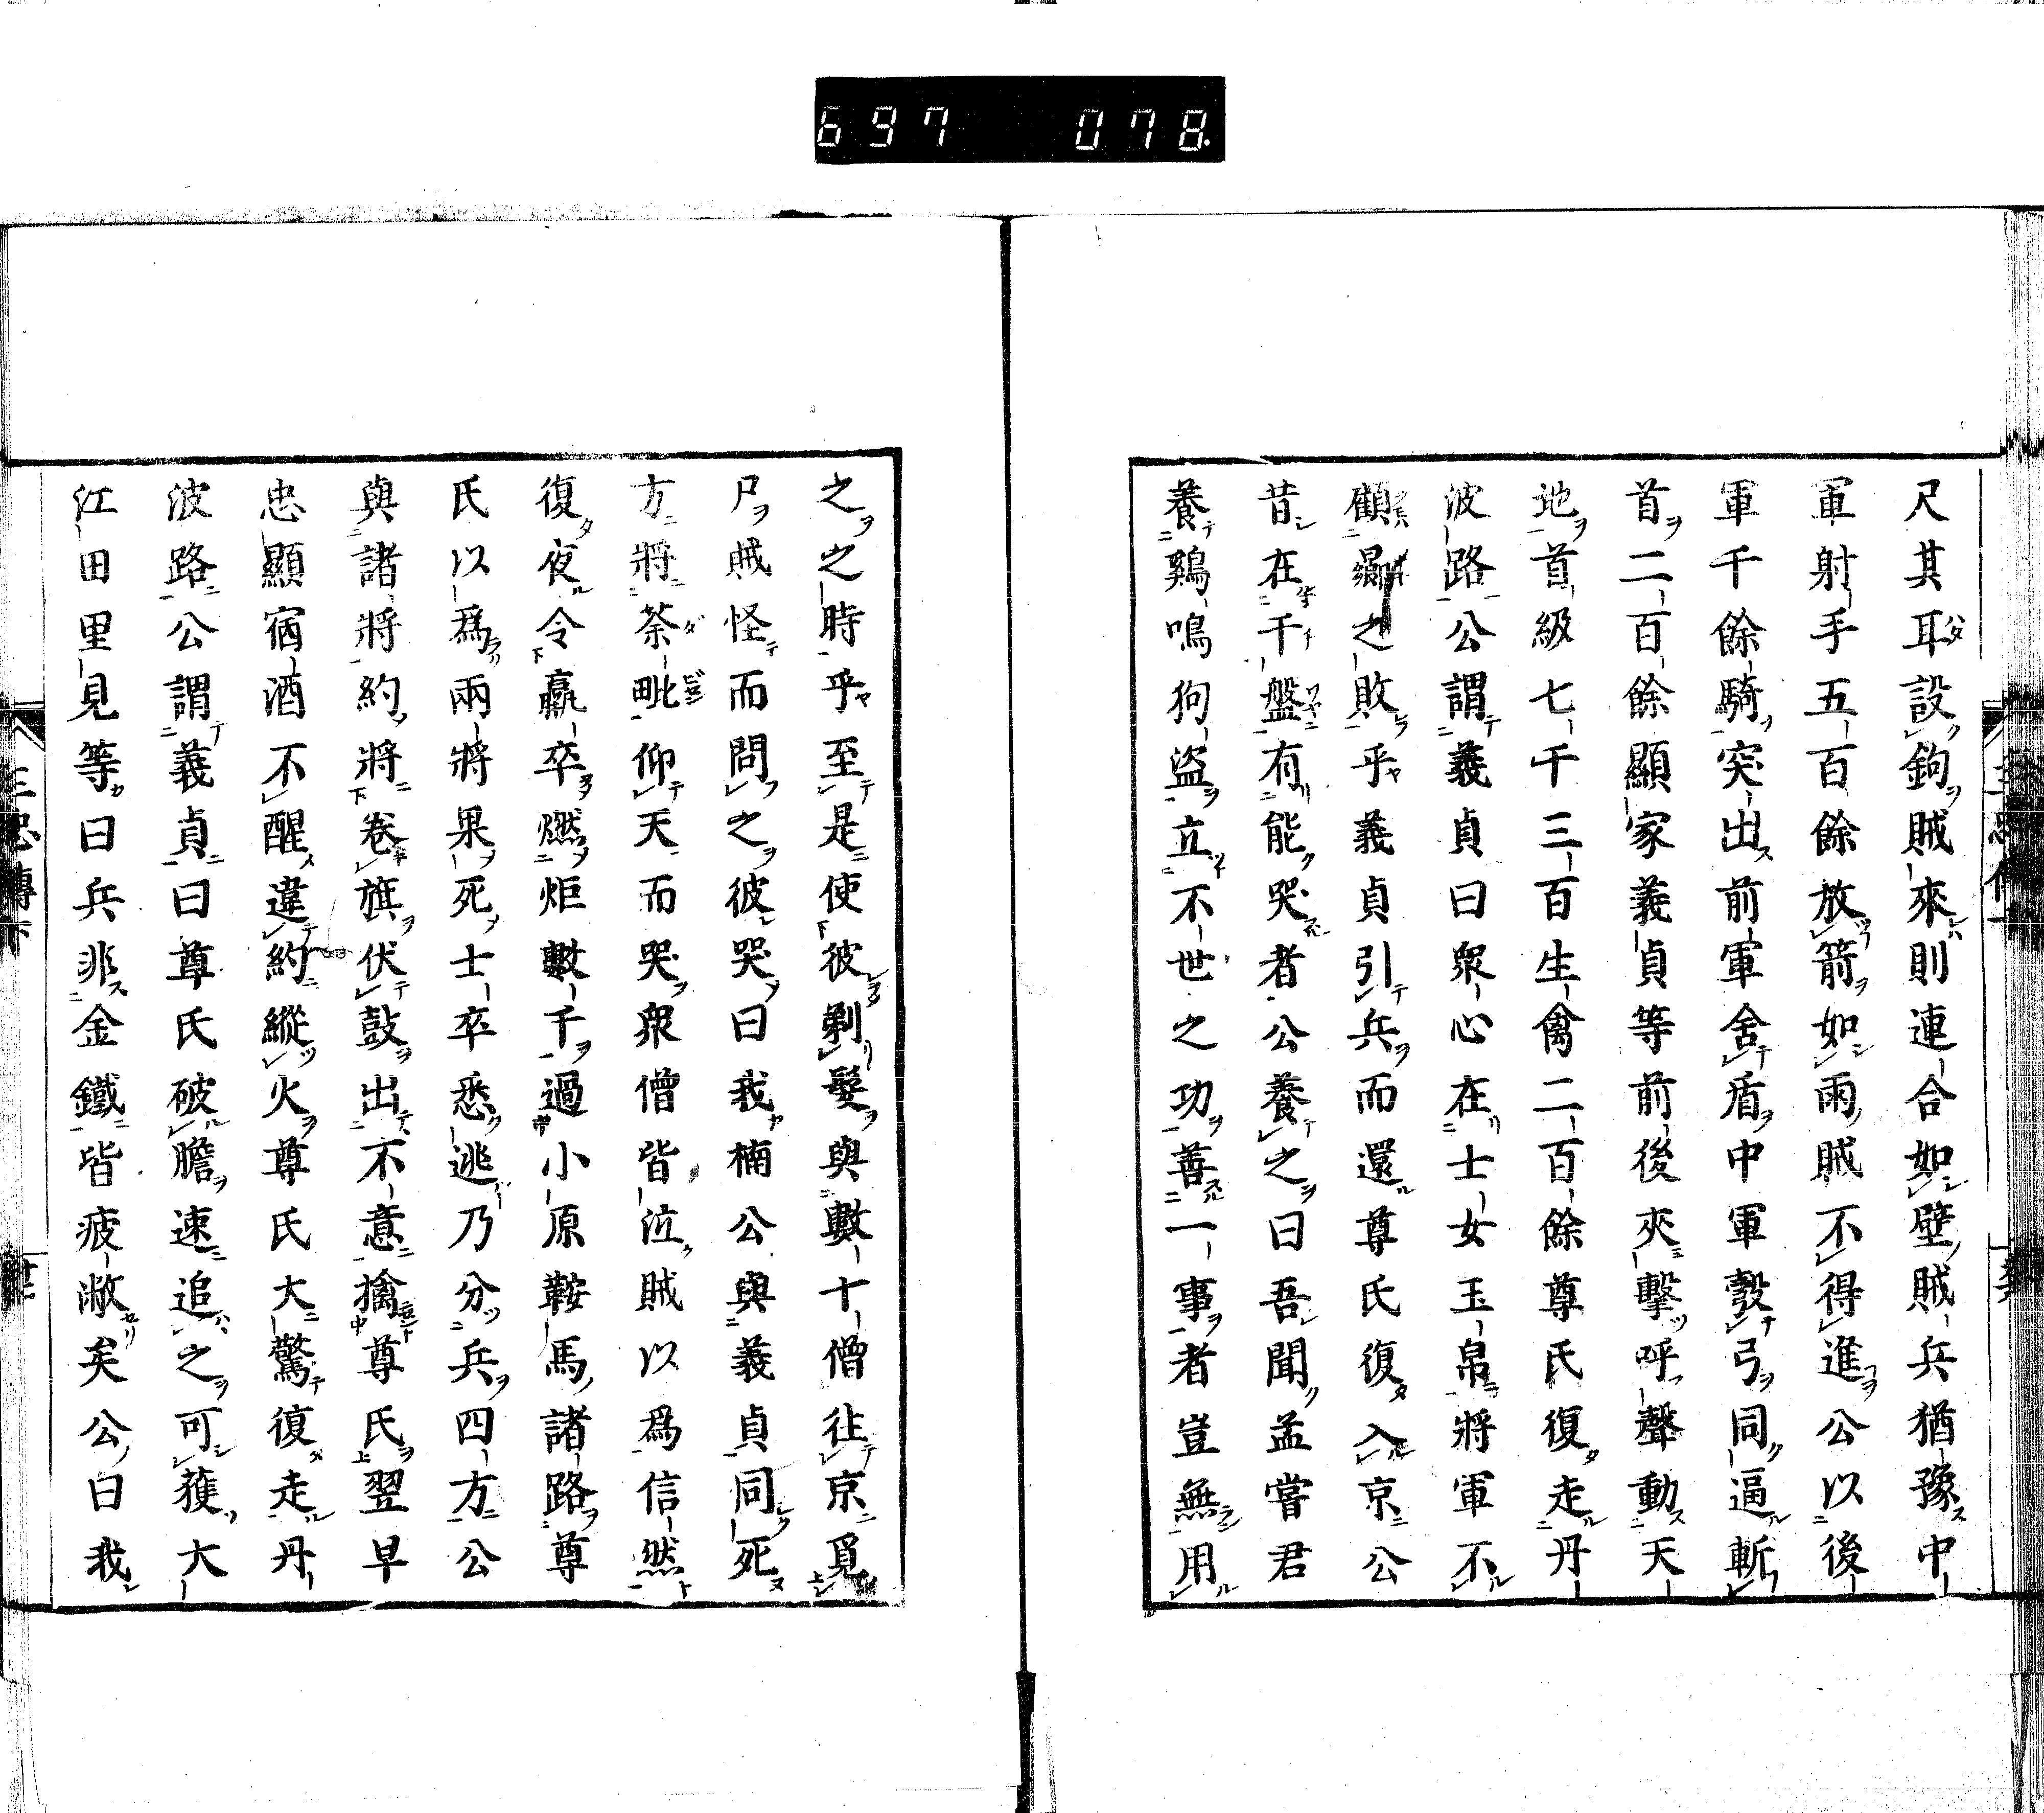 697 078.
尺其耳設鉤賊來則連合如壁賊兵猶豫中
軍射手五百餘放箭如雨賊不得進公以後
軍千餘騎突出前軍舍盾中軍彀弓同逼斬
首二百餘顯家義貞等前後夾擊呼聲動天
地首級七千三百生禽二百餘尊氏復走丹
波路公謂義貞曰眾心在士女玉帛將軍不
顧曩之敗乎義貞引兵而還尊氏復入京公
昔在千盤有能哭者公養之曰吾聞孟嘗君
養鷄鳴狗盜立不世之功善一事者豈無用
之之時乎至是使彼剃髮與數十僧往京覓
尸賊怪而問之彼哭曰我楠公與義貞同死
方將荼毗仰天而哭眾僧皆泣賊以為信然
復夜令羸卒燃炬數千過小原鞍馬諸路尊
氏以為兩將果死士卒悉逃乃分兵四方公
與諸將約將卷旗伏鼓出不意擒尊氏翌早
忠顯宿酒不醒違約縱火尊氏大驚復走丹
波路公謂義貞曰尊氏破膽速追之可獲大
江田里見等曰兵非金鐵皆疲敝矣公曰我